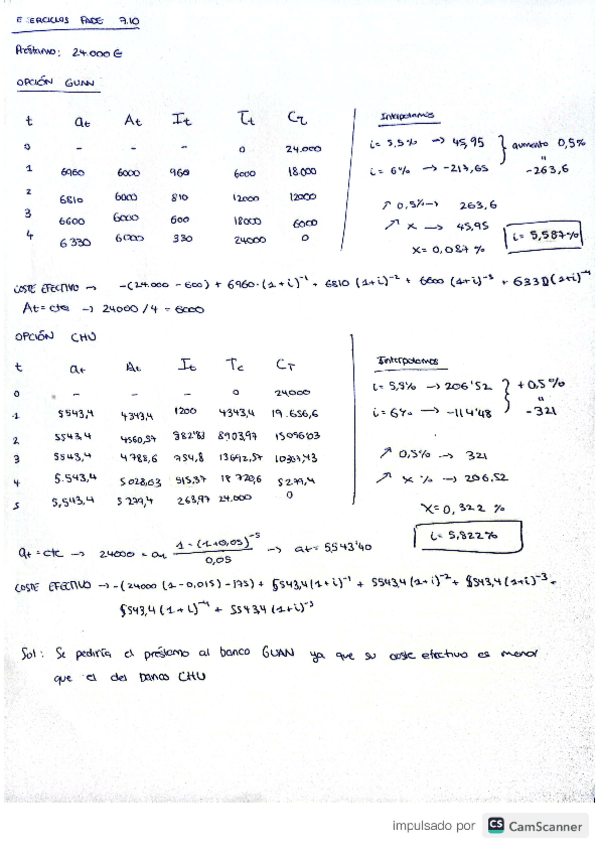 EJERCICIOS FADE 7.10
Préstamo: 24.000 €
OPCIÓN GUAN
t at At It Tt Ct
0 - - - 0 24.000
1 6960 6000 960 6000 18.000
2 6810 6000 810 12000 12000
3 6600 6000 600 18000 6000
4 6330 6000 330 24000 0
Interpolamos
i = 5,5% → 45,95
i = 6% → -217,65
aumento 0,5%
"
-263,6
↗ 0,5% → 263,6
↗ x → 45,95
x = 0,087 %
i = 5,587%
COSTE EFECTIVO → -(24.000 - 600) + 6960·(1+i)⁻¹ + 6810 (1+i)⁻² + 6600 (1+i)⁻³ + 6330(1+i)⁻⁴
At = cte → 24000/4 = 6000
OPCIÓN CHU
t at At It Tt Ct
0 - - - 0 24000
1 5543,4 4343,4 1200 4343,4 19.656,6
2 5543,4 4560,57 982'83 8903,97 15096'03
3 5543,4 4788,6 754,8 13692,57 10307,43
4 5.543,4 5028,03 515,37 18720,6 5279,4
5 5,543,4 5279,4 263,97 24.000 0
Interpolamos
i = 5,5% → 206'52
i = 6% → -114'48
+0,5%
"
-321
↗ 0,5% → 321
↗ x % → 206,52
x = 0,322 %
i = 5,822%
at = cte → 24000 = a₁ 1-(1+0,05)⁻⁵ / 0,05 → at = 5,543'40
COSTE EFECTIVO → -(24000 (1-0,015) -175) + 5543,4(1+i)⁻¹ + 5543,4 (1+i)⁻² + 5543,4 (1+i)⁻³ +
5543,4 (1+i)⁻⁴ + 5543,4 (1+i)⁻⁵
Sol: Se pediría el préstamo al banco GUAN ya que su coste efectivo es menor
que el del banco CHU
impulsado por CS CamScanner